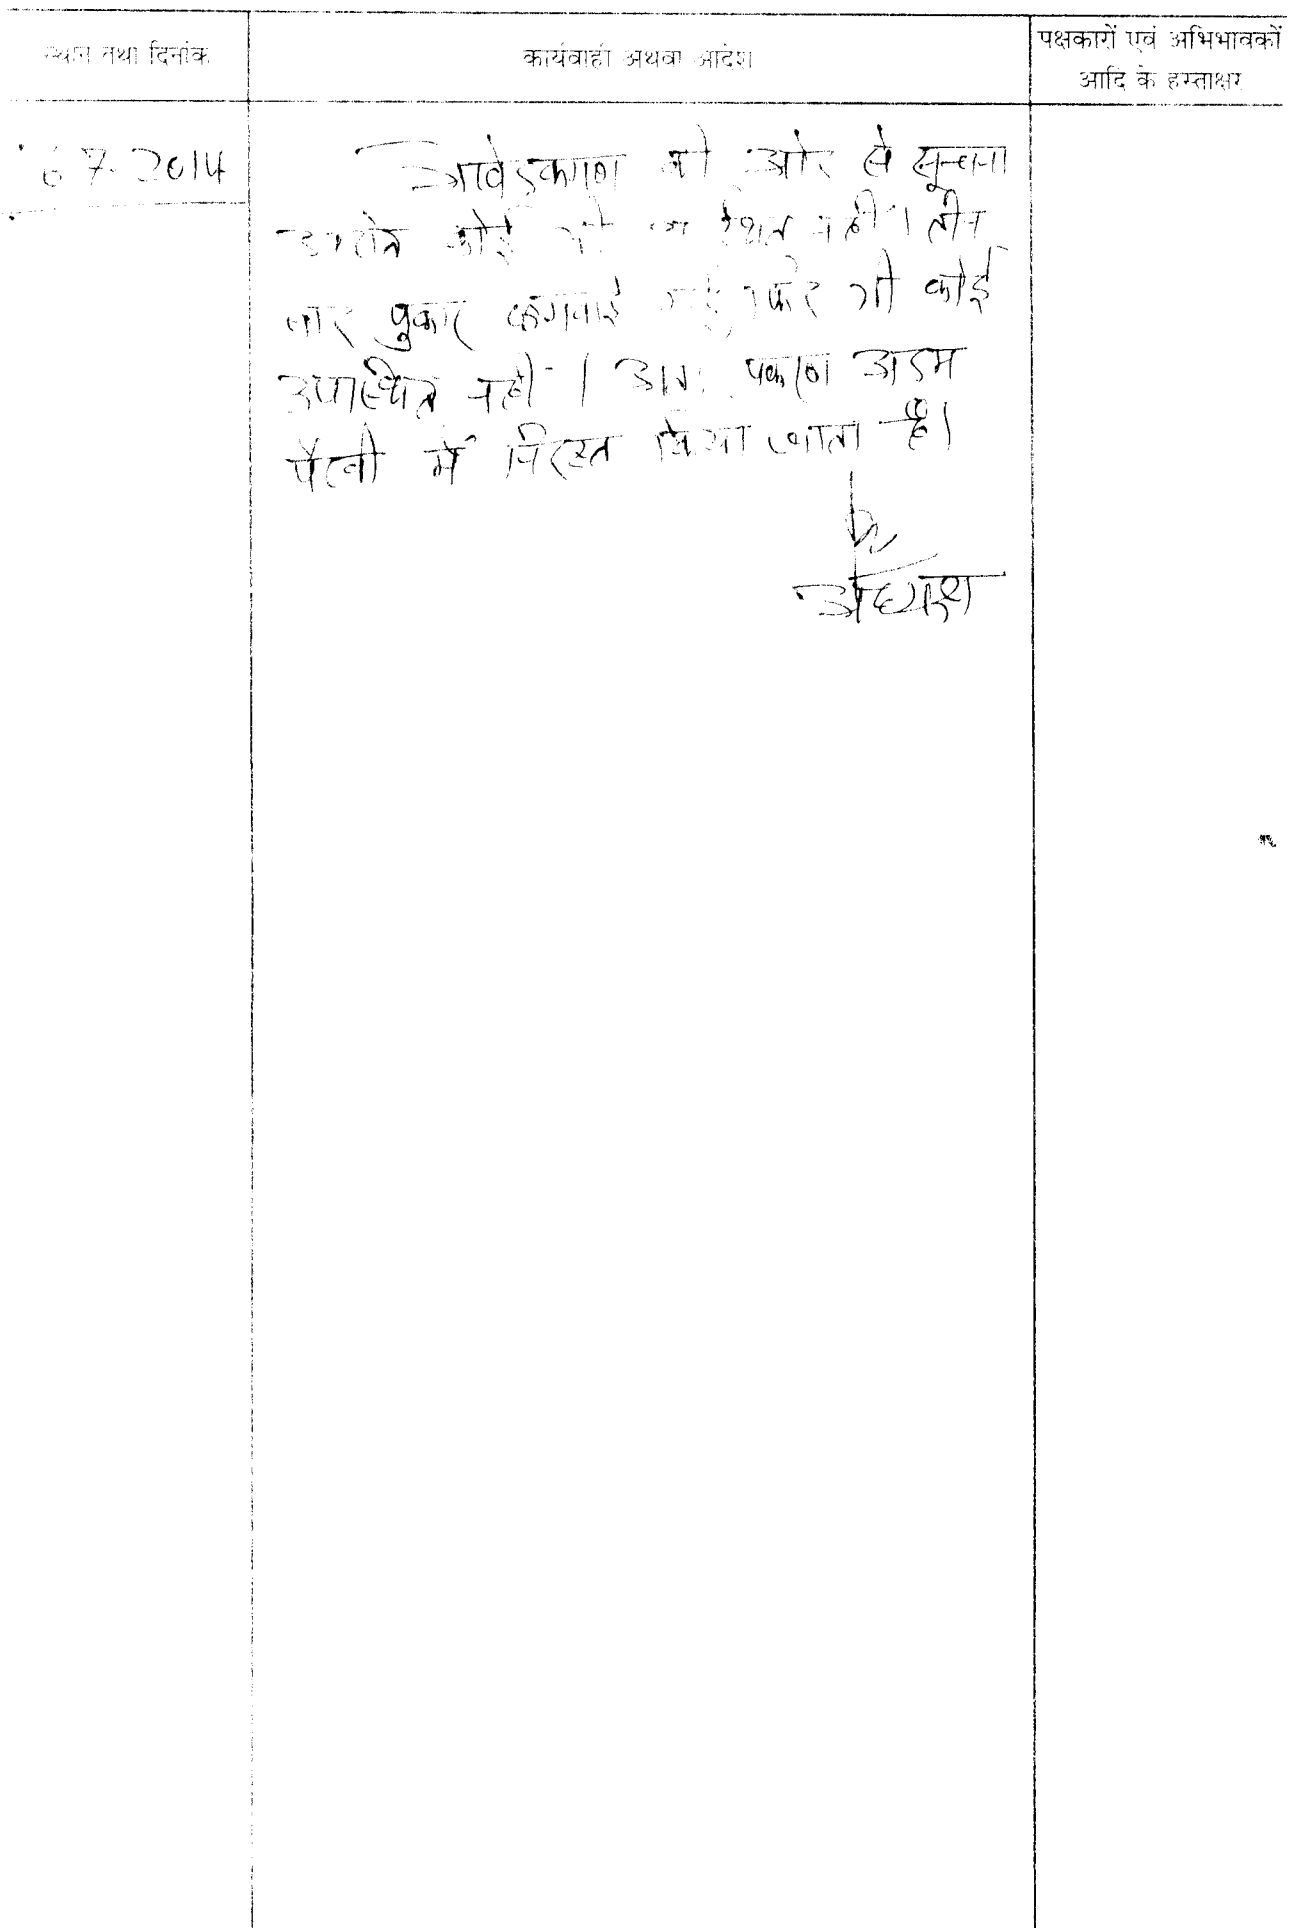 स्थान तथा दिनांक
कार्यवाही अथवा आदेश
पक्षकारों एवं अभिभावकों
आदि के हस्ताक्षर
6 7-2014
आवेदकगण की ओर से सूचना
उपरांत कोई भी उपस्थित नहीं। तीन
बार पुकार लगवाई गई, फिर भी कोई
उपस्थित नहीं। अतः प्रकरण अदम
पैरवी में निरस्त किया जाता है।
अध्यक्ष